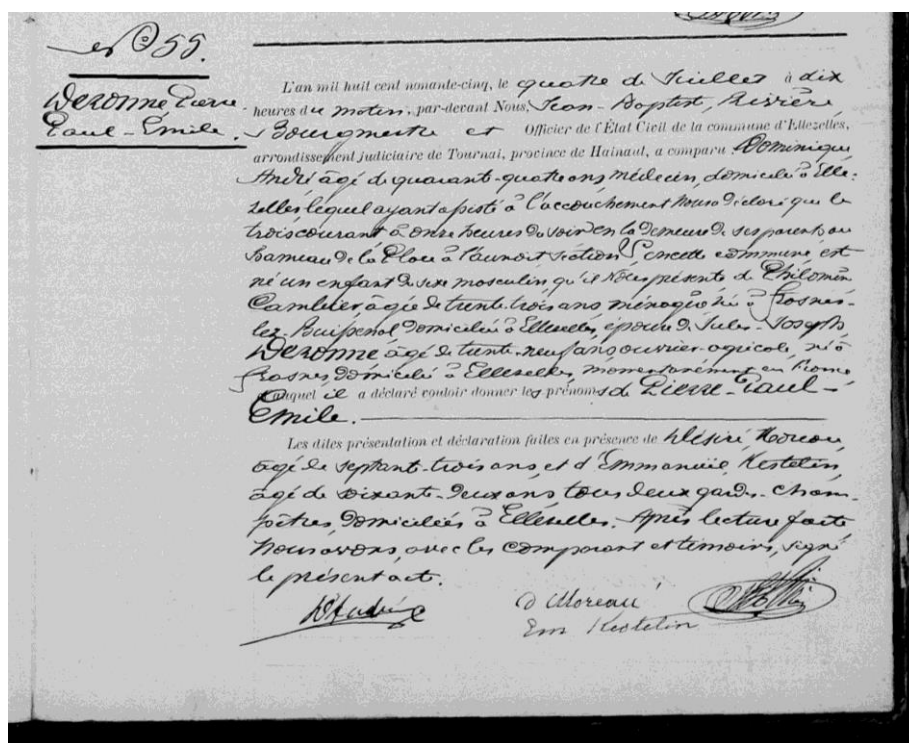 N° 55.
Deronne Pierre-
Paul-Émile.
L'an mil huit cent nonante-cinq, le quatre de Juillet à dix
heures du matin, par-devant Nous, Jean-Baptiste, Rivière,
Bourgmestre et Officier de l'État Civil de la commune d'Ellezelles,
arrondissement judiciaire de Tournai, province de Hainaut, a comparu Dominique
André âgé de quarante-quatre ans, médecin, domicilié à Elle-
zelles lequel ayant assisté à l'accouchement Nous a déclaré que le
trois courant à onze heures du soir en la demeure de ses parents au
hameau de la à section en cette commune, est
né un enfant de sexe masculin qu'il Nous présente de Philomène
Cambier, âgée de trente-trois ans ménagère née à Frasnes-
lez-Buissenal domiciliée à Ellezelles, épouse de Jules-Joseph,
Deronne âgé de trente-neuf ans, ouvrier-agricole, né à
Frasnes, domicilié à Ellezelles, momentanément en
et auquel il a déclaré vouloir donner les prénoms de Pierre-Paul-
Émile.
Les dites présentation et déclaration faites en présence de Désiré, Moreau,
âgé de septante-trois ans, et d'Emmanuel, Kestelin,
âgé de soixante-deux ans tous deux gardes-cham-
pêtres, domiciliés à Ellezelles. Après lecture faite
Nous avons, avec les comparant et témoins, signé
le présent acte.
D André
D Moreau
Em Kestelin